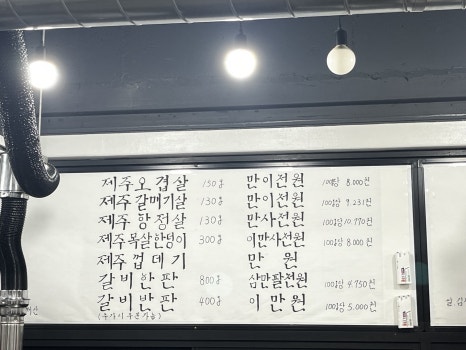 제주오겹살 150g 만이천원 100g당 8.000원
제주갈매기살 130g 만이천원 100g당 9.231원
제주항정살 130g 만사천원 100g당 10.770원
제주목살한덩이 300g 이만사천원 100g당 8.000원
제주껍데기 만원
갈비한판 800g 삼만팔천원 100g당 4.750원
갈비반판 400g 이만원 100g당 5.000원